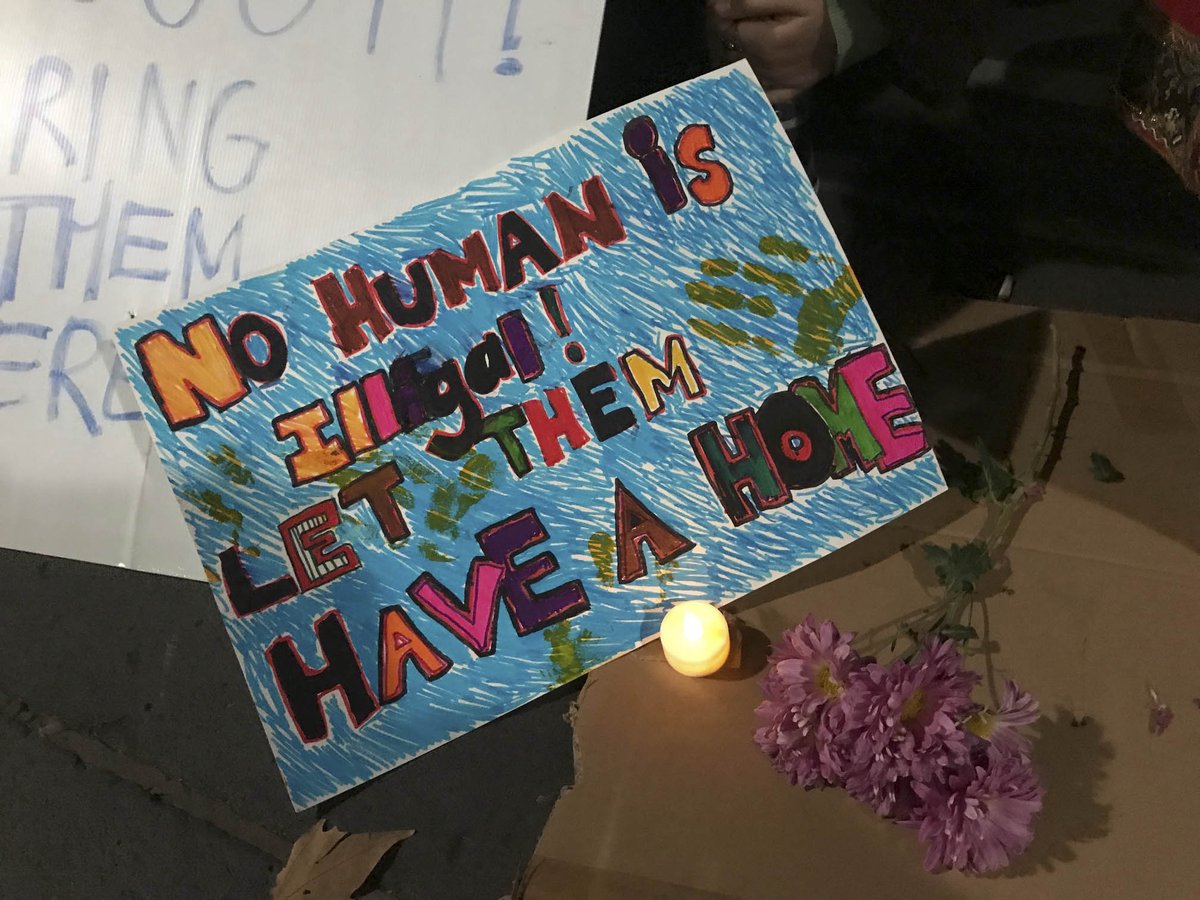 RING
THEM
NO HUMAN iS
Illegal!
LET THEM
HAVE A HOME